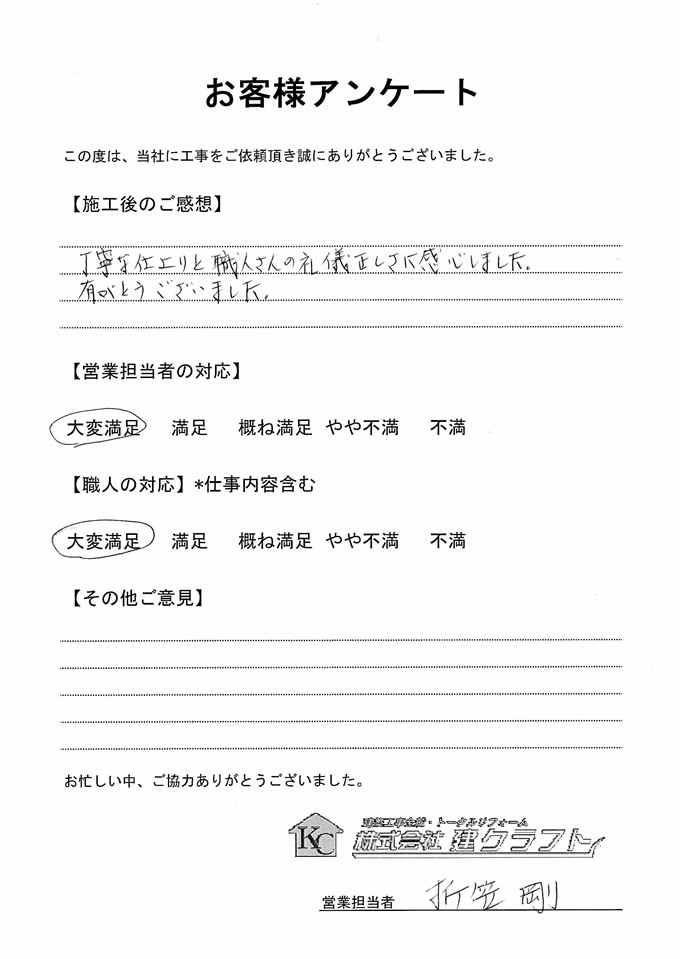 お客様アンケート
この度は、当社に工事をご依頼頂き誠にありがとうございました。
【施工後のご感想】
丁寧な仕上りと職人さんの礼儀正しさに感心しました。
有がとうございました。
【営業担当者の対応】
大変満足 満足 概ね満足 やや不満 不満
【職人の対応】*仕事内容含む
大変満足 満足 概ね満足 やや不満 不満
【その他ご意見】
お忙しい中、ご協力ありがとうございました。
建築工事全般・トータルリフォーム
KC 株式会社 建クラフト
営業担当者 折笠 剛